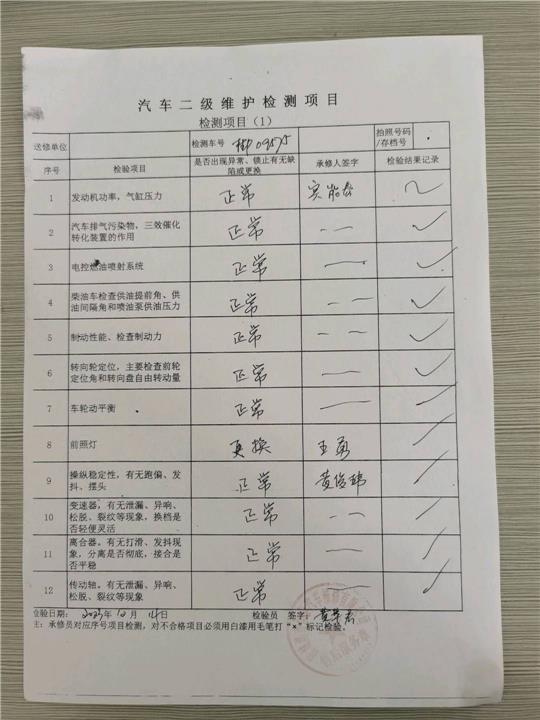 汽车二级维护检测项目
检测项目（1）
送修单位 检测车号 拍照号码/存档号
序号 检验项目 是否出现异常、锁止有无缺陷或更换 承修人签字 检验结果记录
1 发动机功率，气缸压力 正常 ✓
2 汽车排气污染物，三效催化转化装置的作用 正常 — — ✓
3 电控燃油喷射系统 正常 — ✓
4 柴油车检查供油提前角、供油间隔角和喷油泵供油压力 正常 — — ✓
5 制动性能、检查制动力 正常 — — ✓
6 转向轮定位，主要检查前轮定位角和转向盘自由转动量 正常 — — ✓
7 车轮动平衡 正常 — ✓
8 前照灯 更换 王勇 ✓
9 操纵稳定性，有无跑偏、发抖、摆头 正常 黄俊玮 ✓
10 变速器，有无泄漏、异响、松脱、裂纹等现象，换档是否轻便灵活 正常 — — ✓
11 离合器。有无打滑、发抖现象，分离是否彻底，接合是否平稳 正常 — ✓
12 传动轴。有无泄漏、异响、松脱、裂纹等现象 正常 — ✓
检验日期： 2023年12月14日 检验员 签字：
主：承修员对应序号项目检测，对不合格项目必须用白漆用毛笔打“×”标记检验。